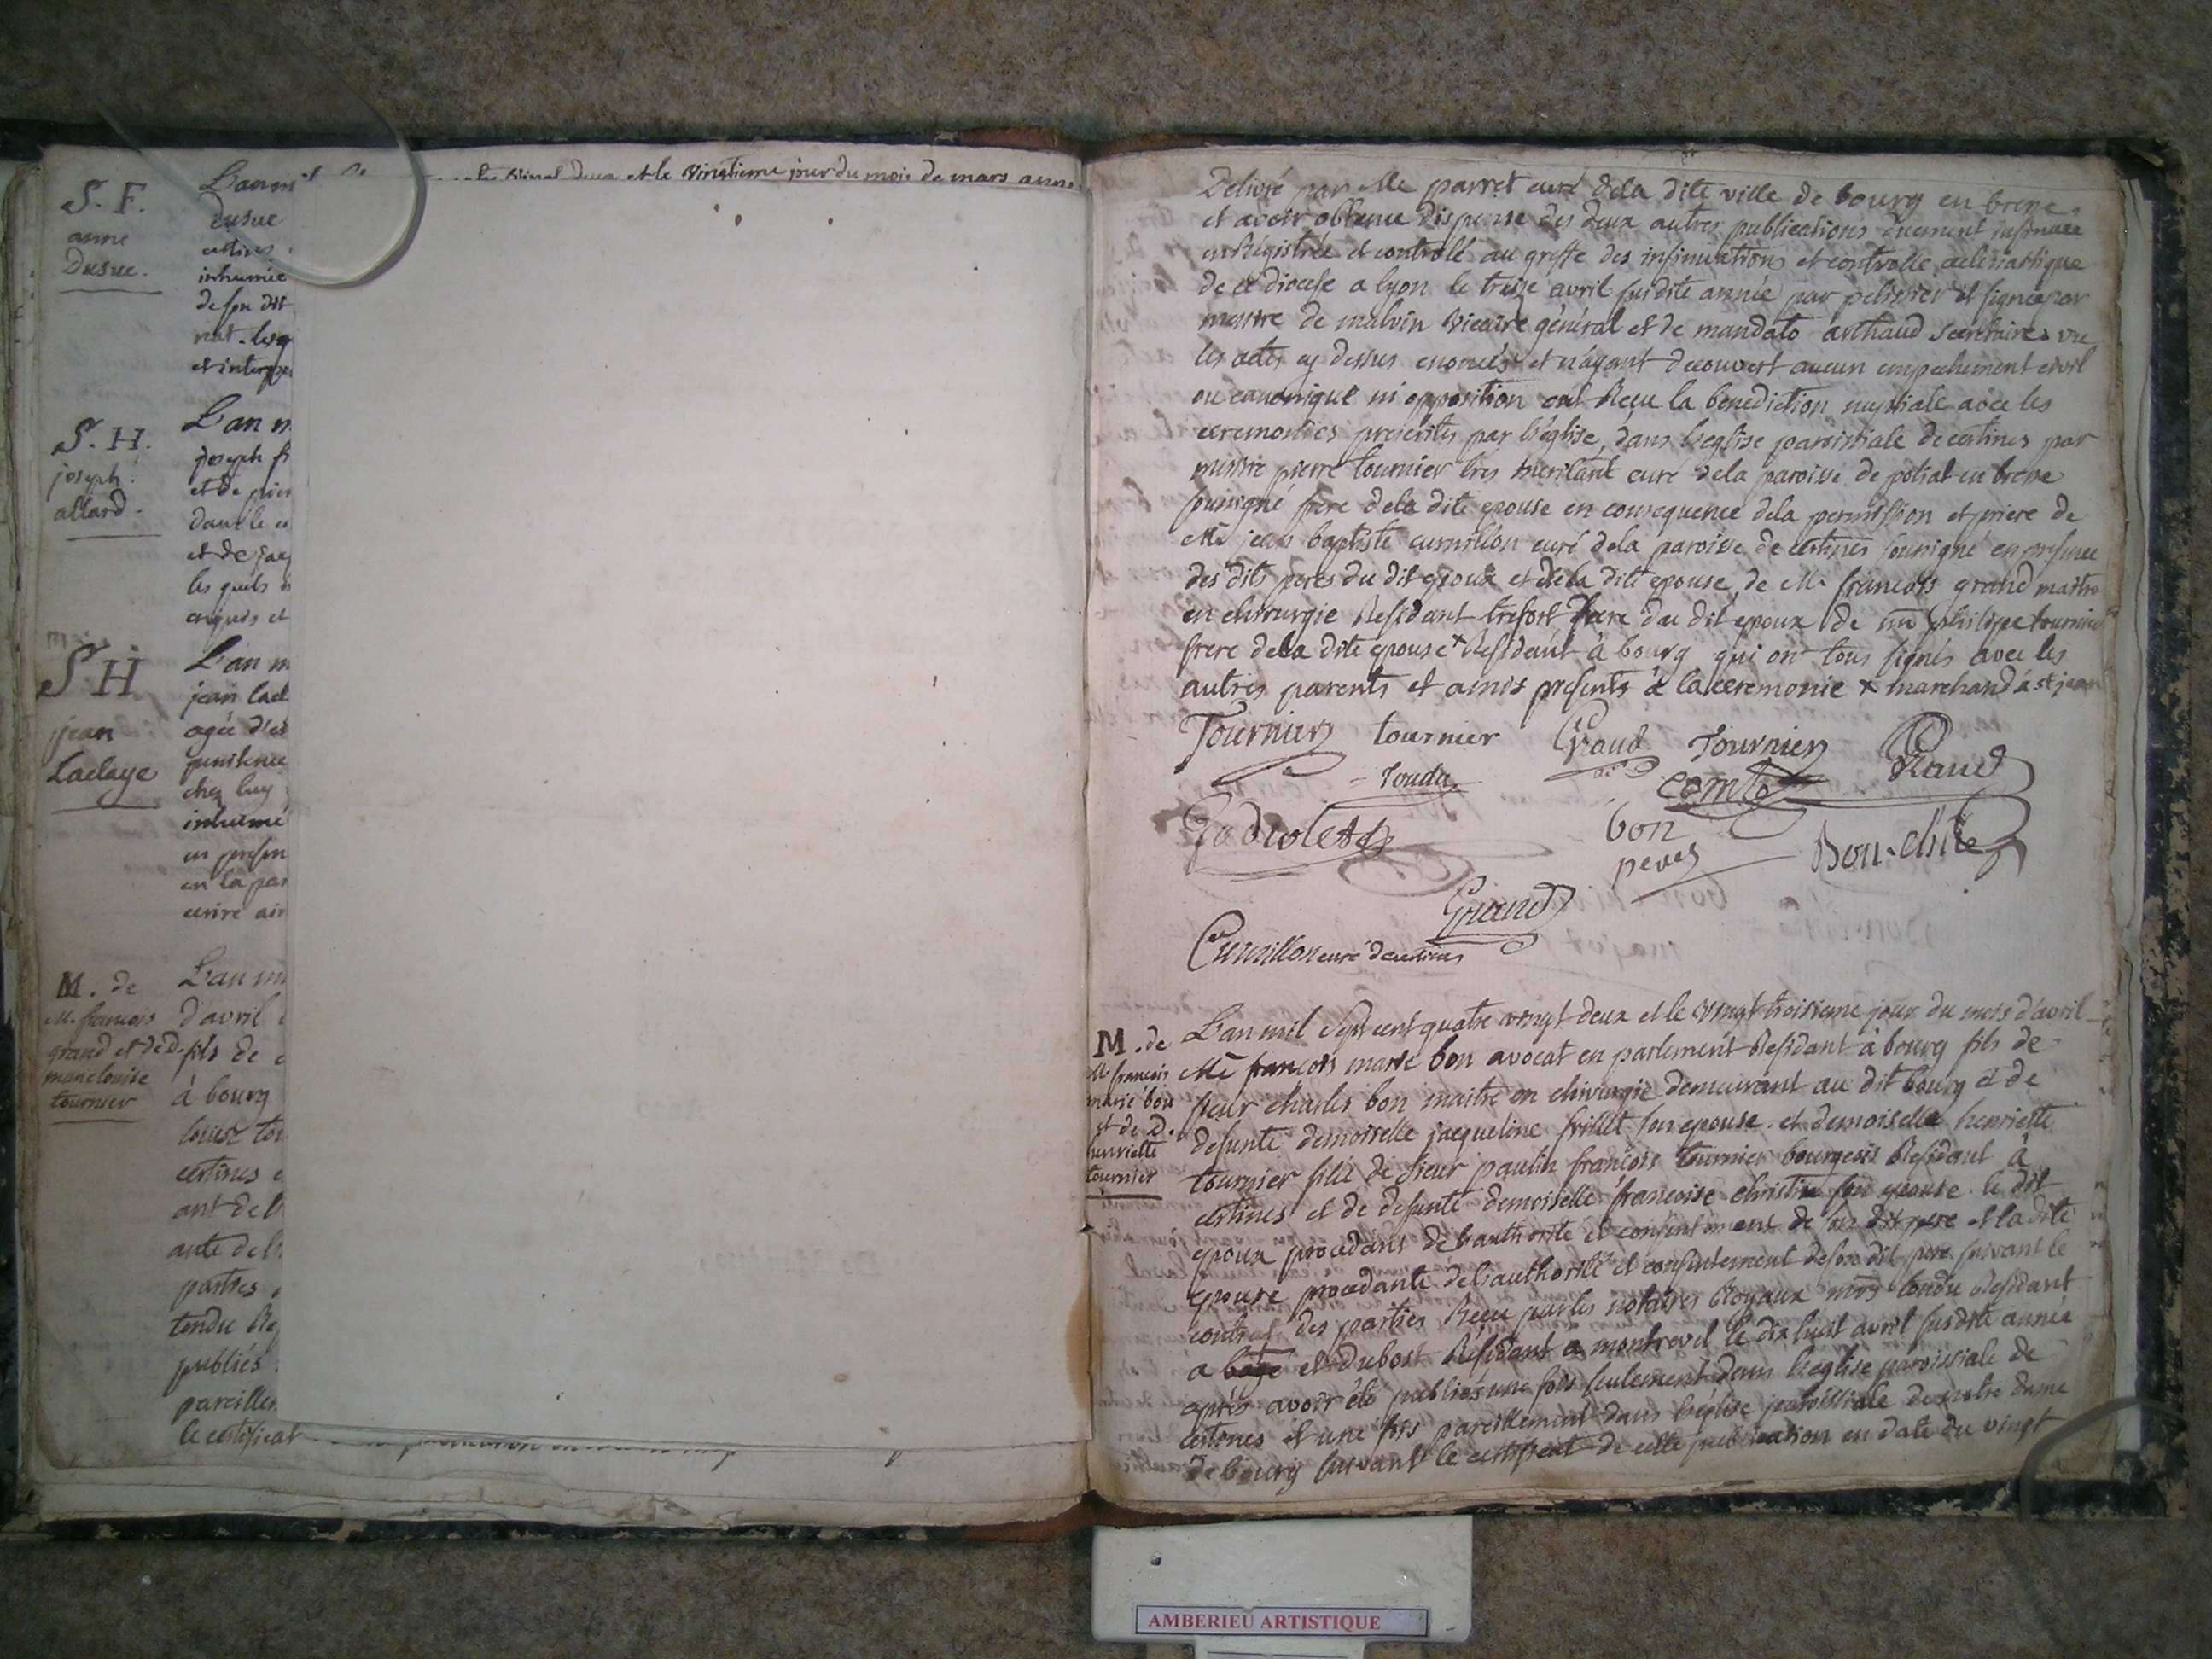 S. F.
anne
Dusue.
L'an mil
Dusue
certines
inhumée
de son dit
nat. les q
et interpe
vingt deux et le vingtieme jour du mois de mars anne
S. H.
joseph
allard.
L'an m
joseph fi
et de pier
dans le ci
et de jacq
les quels
enquis et
S. H
jean
Laclaye
L'an m
jean lacl
agée d'en
penitence
chez luy
inhumé
en presen
en la par
ecrire ain
M. de
Me. francois
grand et de D.
marie louise
tournier
L'an mi
d'avril
fils de
à bourg
louise tou
certines e
ant de l'
ante de l'
parties
tondu Re
publiés
pareillem
le certificat
Delivré par Me parret curé dela dite ville de bourg en bresse
et avoir obtenue dispense des deux autres publications duement insinuée
enRegistrée et controlé au greffe des insinuations et controlle eclesiastique
de ce diocese a lyon le treize avril susdite année par pelissier et signée par
messire de malvin vicaire général et de mandato arthaud secretaire vu
les actes cy dessus enoncés et n'ayant decouvert aucun empechement civil
ou canonique ni opposition ont Recu la benediction nuptiale avec les
ceremonies prescrites par l'église, dans l'eglise paroissiale de certines par
messire pierre tournier tres meritant curé dela paroisse de poliat en bresse
soussigné frere dela dite epouse en consequence dela permission et priere de
Me jean baptiste curnillon curé dela paroisse de certines soussigné en presence
des dits peres du dit epoux et dela dite epouse, de Me francois grand maitre
en chirurgie Residant tresfort frere du dit epoux de mr philipe tournier
frere dela dite epouse x Residant à bourg qui ont tous signés avec les
autres parents et amis presents à la ceremonie x marchand à st jean
Tournier tournier Graud Tournier Graud
Tondu comte
Gadiolet
bon
peres
Bon. chile
Grand
Curnillon curé de certines
M. de
Me francois
marie bon
et de D.
henriette
tournier
L'an mil sept cent quatre vingt deux et le vingt troisieme jour du mois d'avril
Me francois marie bon avocat en parlement Residant à bourg fils de
sieur charles bon maitre en chirurgie demeurant au dit bourg et de
defunte demoiselle jacqueline frillet son epouse. et demoiselle henriette
tournier fille de sieur paulin françois tournier bourgeois Residant à
certines et de defunte demoiselle francoise christin son epouse. le dit
epoux procedant de l'authorité et consentement de son dit pere et la dite
epouse procedante de l'authorité et consentement de son dit pere suivant le
contrat des parties Recu par les notaires Royaux mrs tondu Residant
a bagé et dubost Residant a montrevel le dix huit avril susdite année
après avoir été publiés une fois seulement dans l'eglise paroissiale de
certines et une fois pareillement dans l'église paroissiale de notre dame
de bourg suivant le certificat de cette publication en date du vingt
AMBERIEU ARTISTIQUE